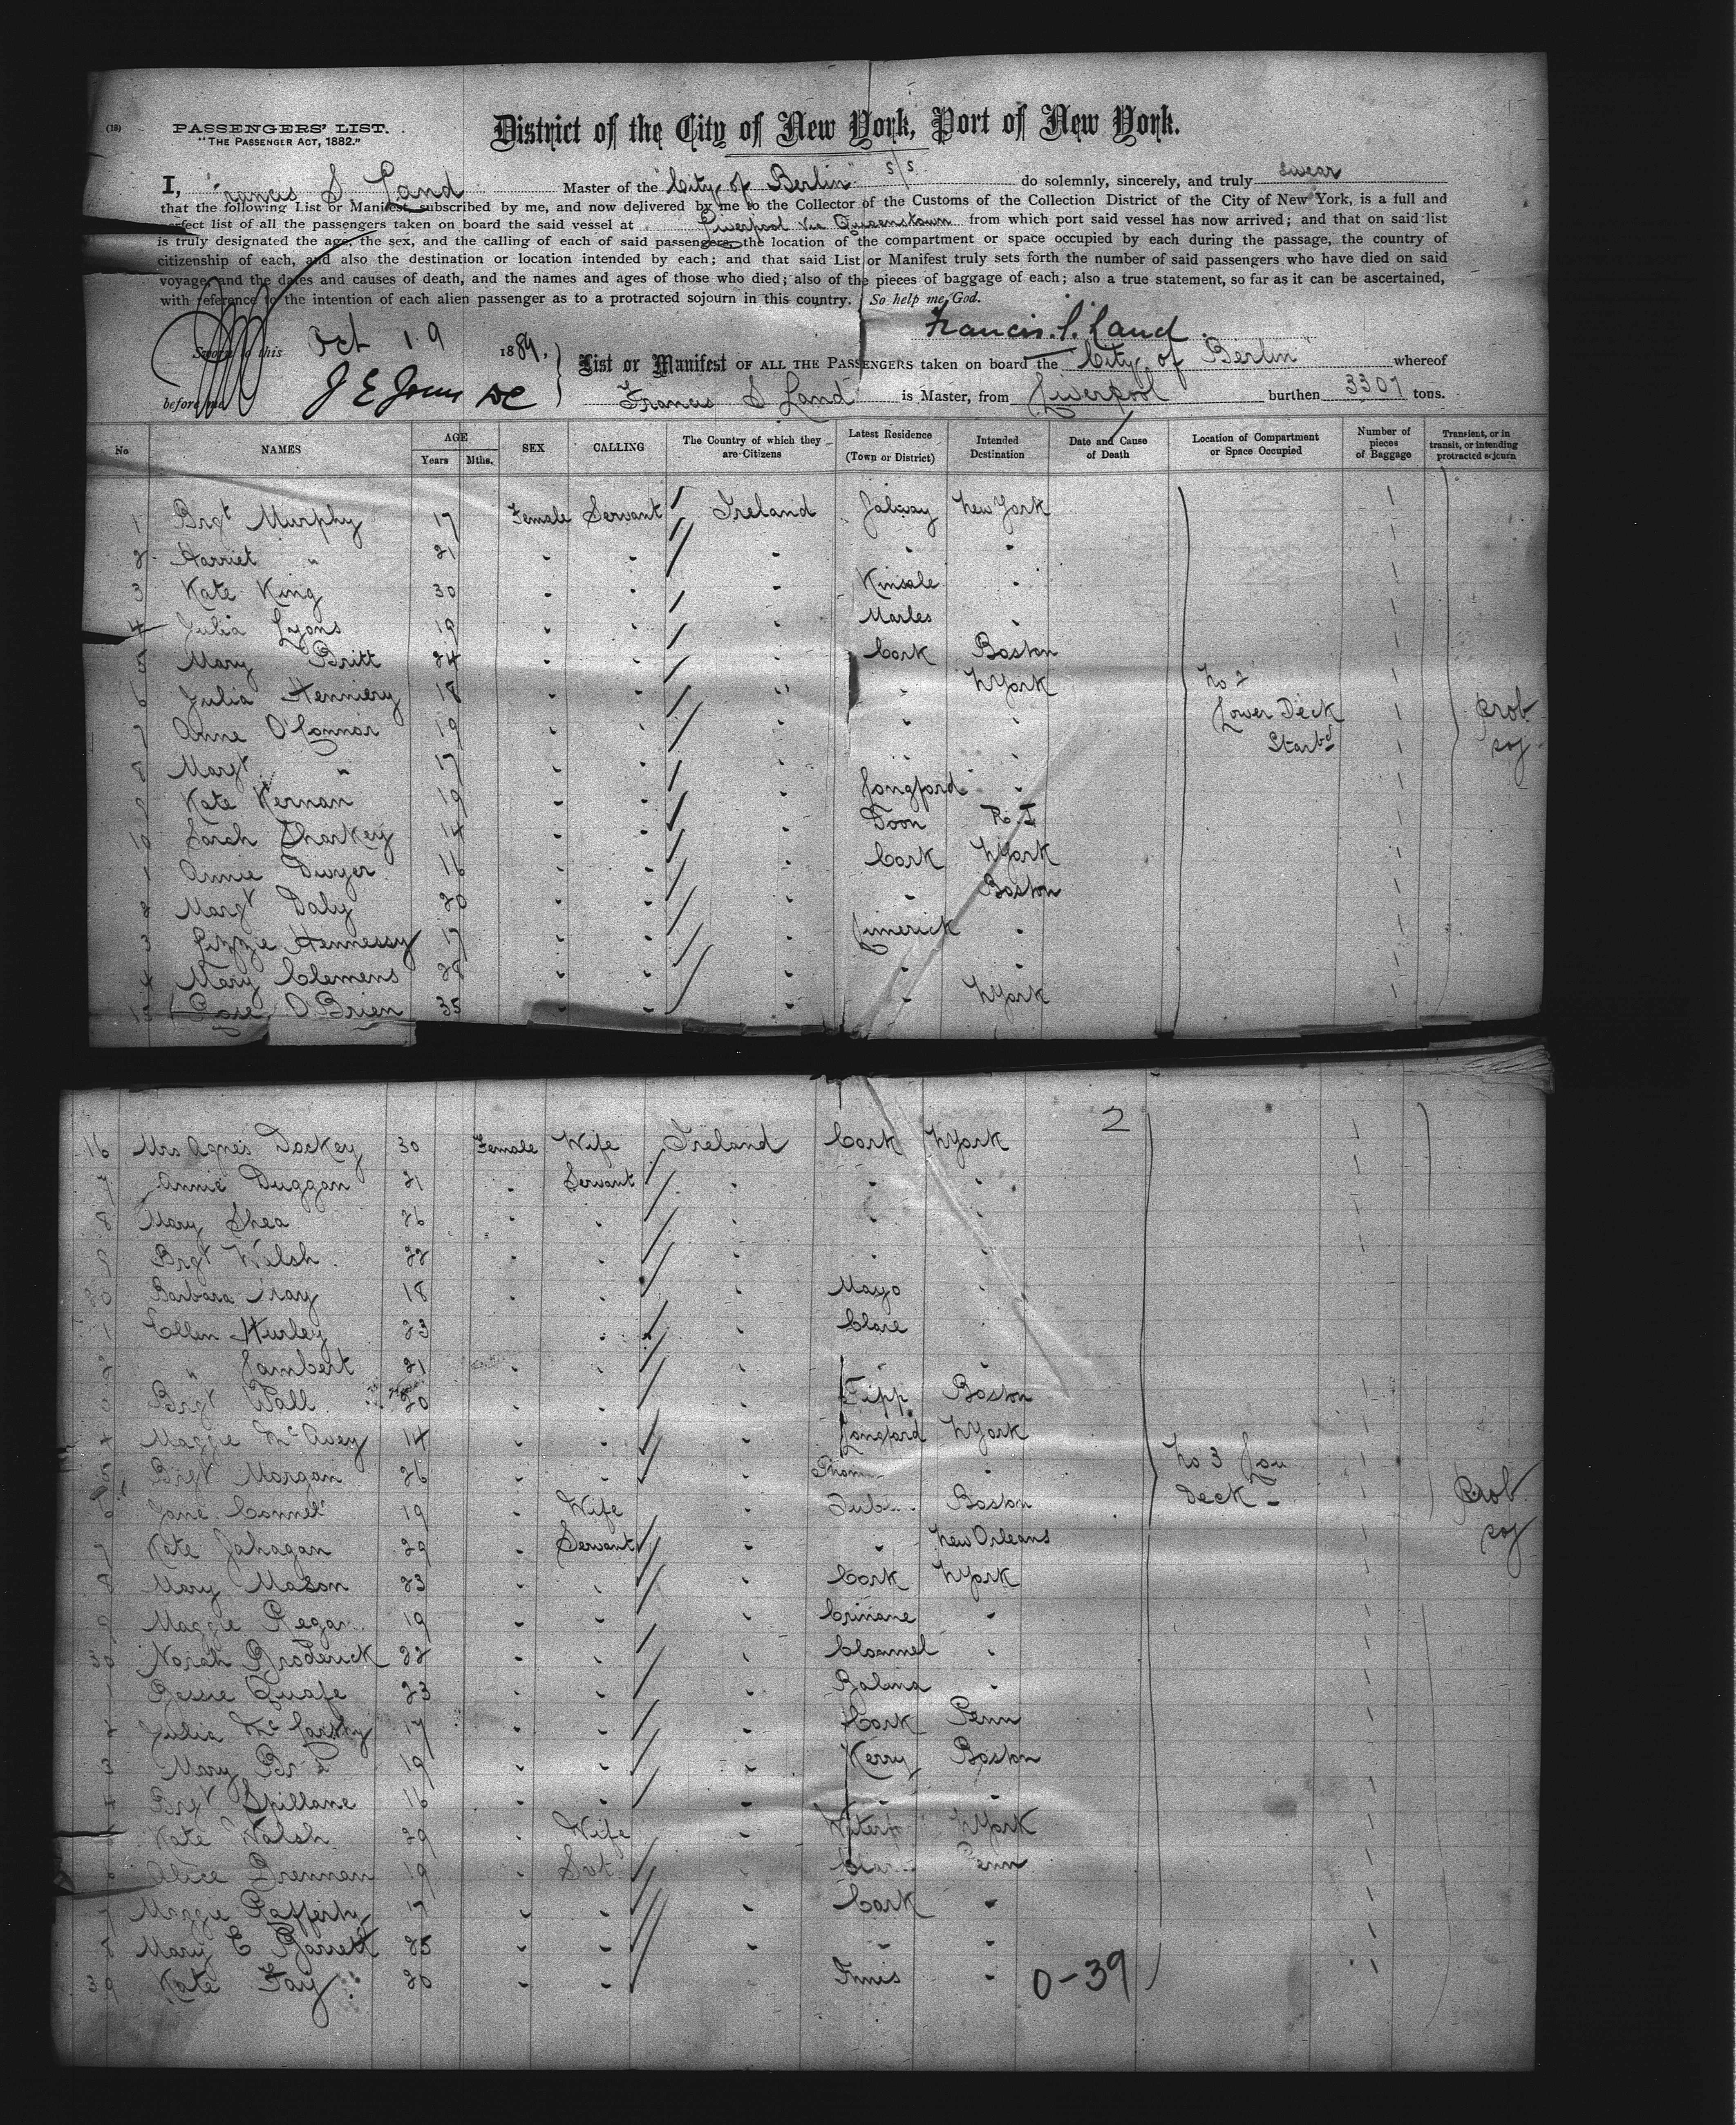 (18)
PASSENGERS' LIST.
"THE PASSENGER ACT, 1882."
District of the City of New York, Port of New York.
I, Francis S. Land Master of the "City of Berlin" s/s do solemnly, sincerely, and truly swear
that the following List or Manifest, subscribed by me, and now delivered by me to the Collector of the Customs of the Collection District of the City of New York, is a full and
perfect list of all the passengers taken on board the said vessel at Liverpool via Queenstown from which port said vessel has now arrived; and that on said list
is truly designated the age, the sex, and the calling of each of said passengers, the location of the compartment or space occupied by each during the passage, the country of
citizenship of each, and also the destination or location intended by each; and that said List or Manifest truly sets forth the number of said passengers who have died on said
voyage, and the dates and causes of death, and the names and ages of those who died; also of the pieces of baggage of each; also a true statement, so far as it can be ascertained,
with reference to the intention of each alien passenger as to a protracted sojourn in this country. So help me God.
Francis. S. Land
Sworn to this Oct 19 1889,
before me
List or Manifest OF ALL THE PASSENGERS taken on board the "City of Berlin" whereof
Francis S Land is Master, from Liverpool burthen 3307 tons.
No NAMES AGE Years Mths. SEX CALLING The Country of which they are Citizens Latest Residence (Town or District) Intended Destination Date and Cause of Death Location of Compartment or Space Occupied Number of pieces of Baggage Transient, or in transit, or intending protracted sojourn
1 Brgt Murphy 17 Female Servant Ireland Galway New York 1
2 Harriet " 21 " " " " " 1
3 Kate King 30 " " " Kinsale " 1
4 Julia Lyons 19 " " " Marles " 1
5 Mary Britt 24 " " " Cork Boston 1
6 Julia Henniery 18 " " " " NYork 1
7 Anne O'Connor 19 " " " " " 1
8 Margt " 17 " " " " " 1
9 Kate Kernan 19 " " " Longford " 1
10 Sarah Sharkey 14 " " " Doon R.I 1
1 Annie Dwyer 16 " " " Cork NYork 1
2 Margt Daly 20 " " " " Boston 1
3 Lizzie Hennessy 17 " " " Limerick " 1
4 Mary Clemens 28 " " " " " 1
15 Rose O'Brien 35 " " " " NYork 1
No 2
Lower Deck
Starbd
Prob
soj
2
16 Mrs Agnes Dockey 30 Female Wife Ireland Cork NYork 1
7 Annie Duggan 21 " Servant " " " 1
8 Mary Shea 26 " " " " " 1
9 Brgt Walsh 22 " " " " " 1
20 Barbara 18 " " " Mayo "
1 Ellen Hurley 23 " " Clare "
2 " Lambert 21 " " " " "
3 Brgt Wall 20 " " " Tipp Boston 1
4 Maggie McAvey 14 " " " Longford NYork 1
5 Brgt Morgan 26 " " " " 1
6 Jane Connel 19 " Wife " Boston 1
7 Kate Gahagan 29 " Servant " " New Orleans 1
8 Mary Mason 23 " " " Cork NYork 1
9 Maggie Regan 19 " " " Crinane " 1
30 Norah Broderick 22 " " " Clonmel " 1
1 Bessie Quafe 23 " " " Balina " 1
2 Julia McCarthy 17 " " " Cork Penn 1
3 Mary 19 " " " Kerry Boston
4 Brgt Spillane 16 " " " " " 1
5 Kate Walsh 29 " Wife " Waterf NYork 1
6 Alice Brennan 19 " Svt " Penn 1
7 Maggie Rafferty 17 " " " Cork " 1
8 Mary E Barrett 25 " " " " " 1
39 Kate Fay 20 " " Innis " 1
No 3 Low
Deck
Prob
soj
0-39